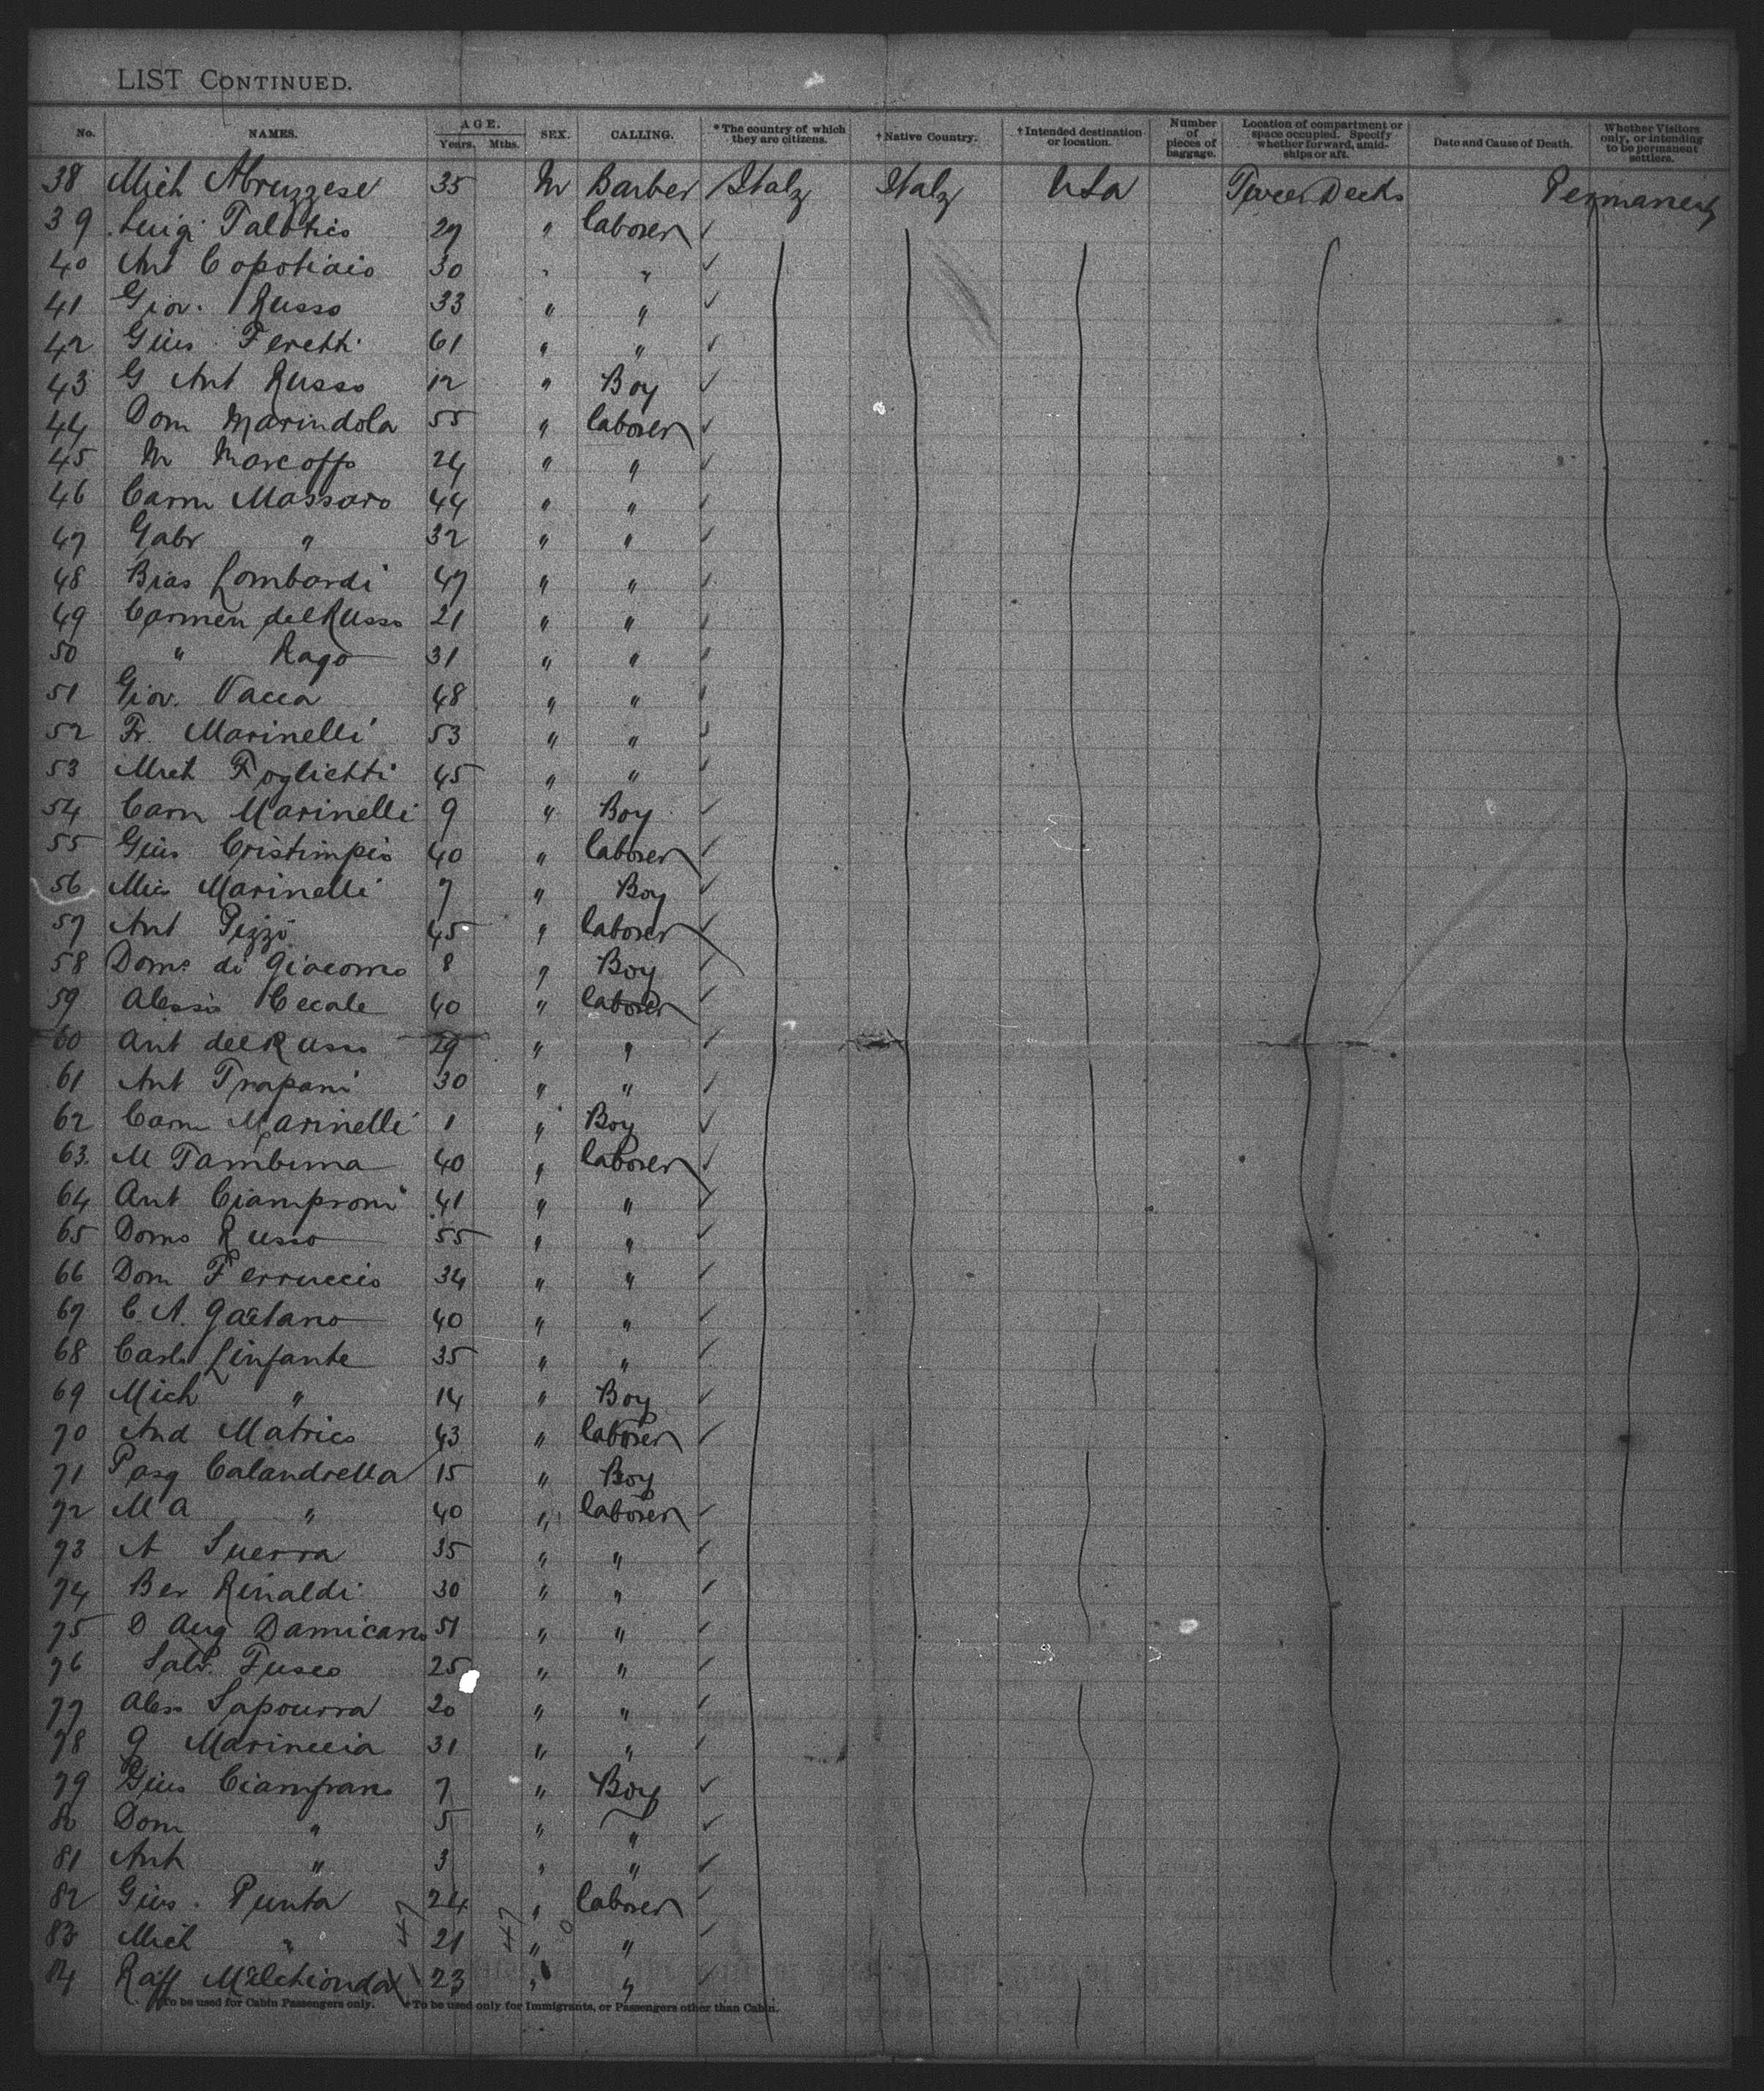 LIST CONTINUED.
No. NAMES. AGE. Years. Mths. SEX. CALLING. *The country of which they are citizens. †Native Country. †Intended destination or location. Number of pieces of baggage. Location of compartment or space occupied. Specify whether forward, amidships or aft. Date and Cause of Death. Whether Visitors only, or intending to be permanent settlers.
38 Mich Abruzzese 35 M Barber Italy Italy USA Tween Decks Permanent
39 Luigi Talotico 29 " laborer
40 Ant Copotiaio 30 " "
41 Giov. Russo 33 " "
42 Gius Feretti 61 " "
43 G Ant Russo 12 " Boy
44 Dom Marindola 55 " laborer
45 M Marcoffo 24 " "
46 Carm Massaro 44 " "
47 Gabr " 32 " "
48 Bias Lombardi 47 " "
49 Carmen del Russo 21 " "
50 " Rago 31 " "
51 Giov. Vacca 48 " "
52 Fr. Marinelli 53 " "
53 Mich Foglietti 45 " "
54 Carm Marinelli 9 " Boy
55 Gius Cristimpio 40 " laborer
56 Mic Marinelli 7 " Boy
57 Ant Pizzi 45 " laborer
58 Domo di Giacomo 8 " Boy
59 Alessio Cecale 40 " laborer
60 Ant del Russo 29 " "
61 Ant Trapani 30 " "
62 Carm Marinelli 1 " Boy
63. M Tamburra 40 " laborer
64 Ant Ciamproni 41 " "
65 Domo Russo 55 " "
66 Dom Ferruccio 34 " "
67 C. A. Gaetano 40 " "
68 Carlo Linfante 35 " "
69 Mich " 14 " Boy
70 And Matrico 43 " laborer
71 Pasq Calandrella 15 " Boy
72 M A " 40 " laborer
73 A Suerra 35 " "
74 Ber Rinaldi 30 " "
75 D Aug Damicano 51 " "
76 Salv. Fusco 25 " "
77 Aless Sapourra 20 " "
78 G Marinccia 31 " "
79 Gius Ciamprano 7 " Boy
80 Dom " 5 " "
81 Ant " 3 " "
82 Gius. Punta 24 " laborer
83 Mich " 21 " "
84 Raff Melchionda 23 " "
To be used for Cabin Passengers only. *To be used only for Immigrants, or Passengers other than Cabin.